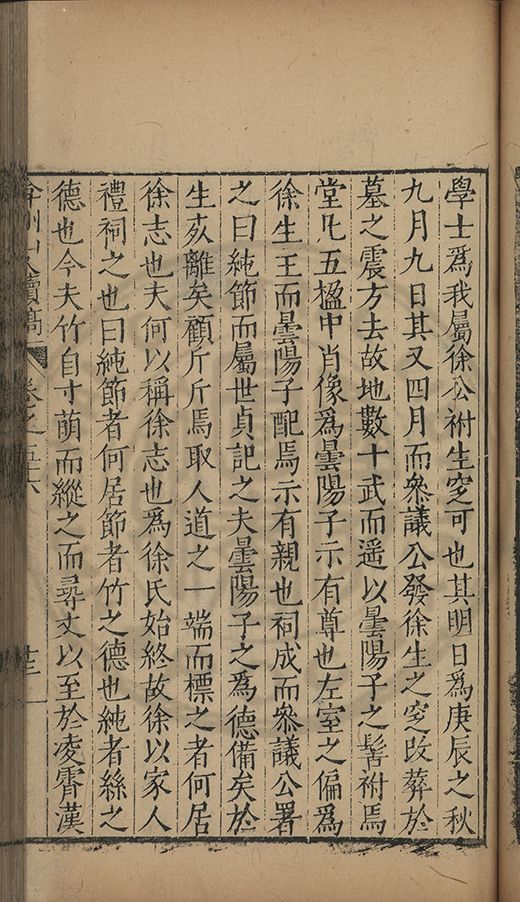 學士爲我屬徐公祔生窆可也其明日爲庚辰之秋
九月九日其又四月而叅議公發徐生之窆改葬於
墓之震方去故地數十武而遥以曇陽子之髻祔焉
堂凡五楹中肖像爲曇陽子示有尊也左室之偏爲
徐生王而曇陽子配焉示有親也祠成而叅議公署
之曰純節而屬世貞記之夫曇陽子之爲德備矣於
生死離矣顧斤斤焉取人道之一端而標之者何居
徐志也夫何以稱徐志也爲徐氏始終故徐以家人
禮祠之也曰純節者何居節者竹之德也純者絲之
德也今夫竹自寸萌而縱之而尋丈以至於凌霄漢
續稿 卷之五十六 十三